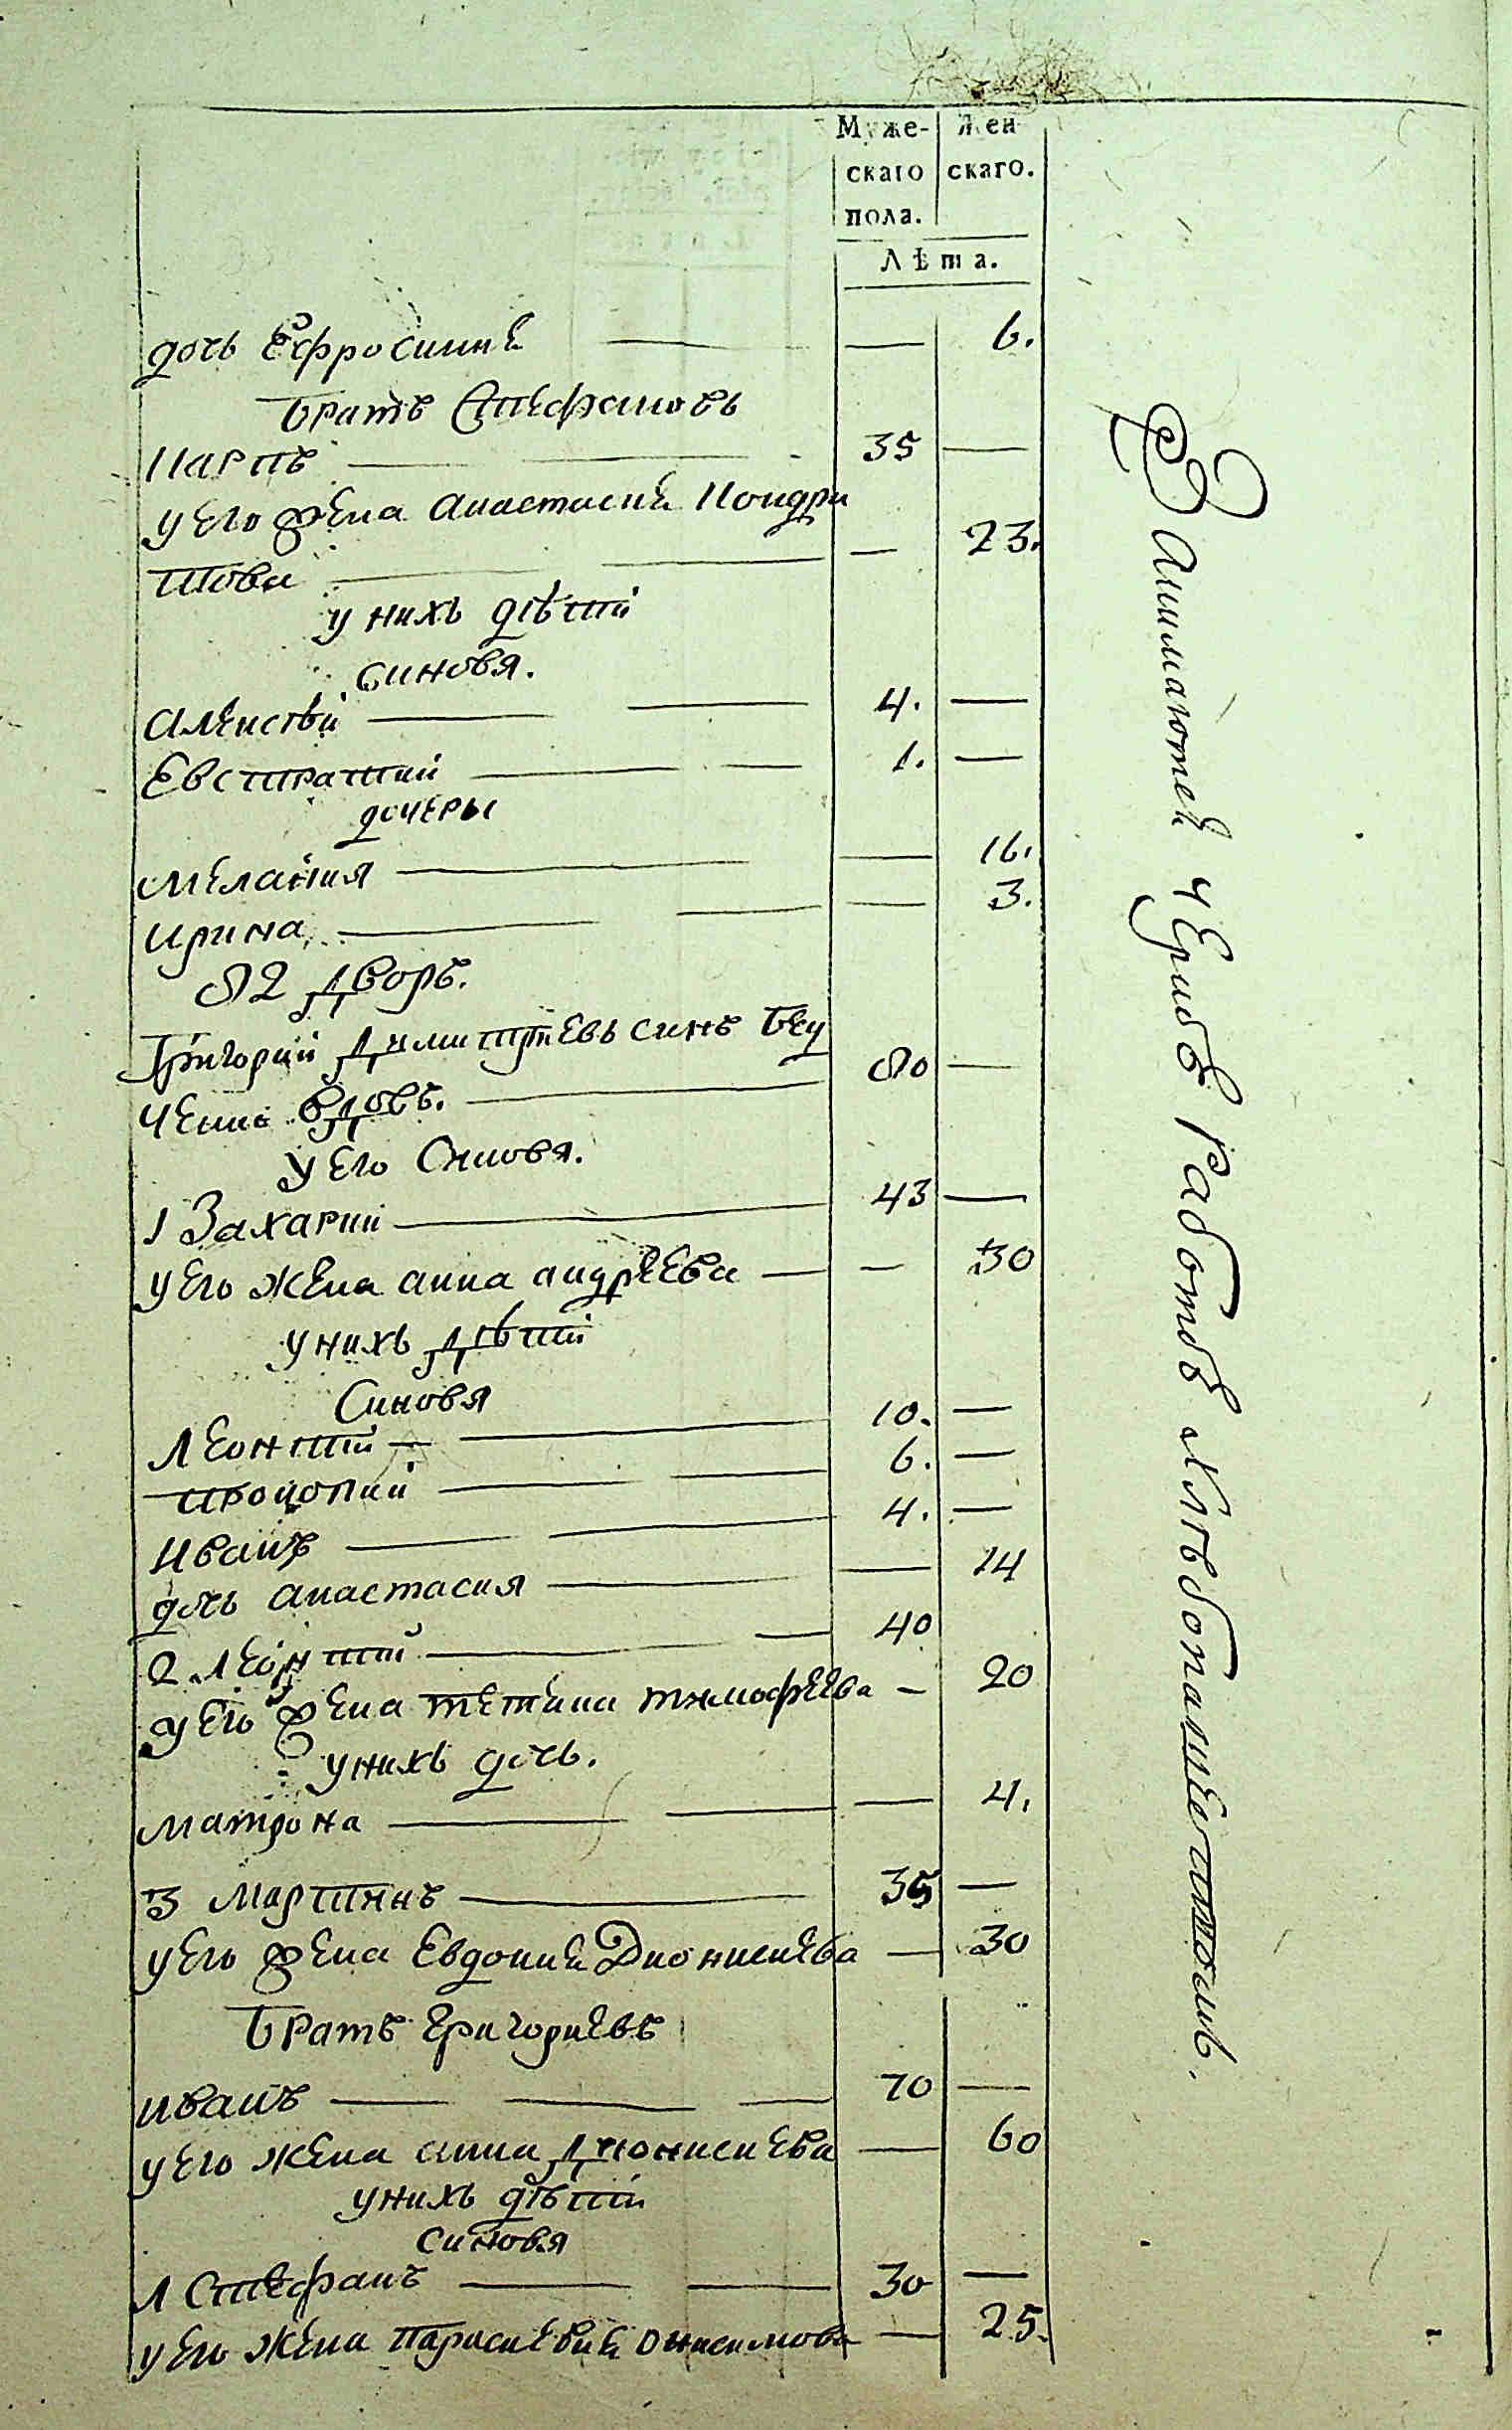 Муже-
скаго
пола.
Жен
скаго.
Лѣта.
дочь Ефросиниѣ — — 6.
Братъ Стефановъ
Карпъ — 35 —
у его жена Анастасиѣ Кондра
това — — 23.
у нихъ дѣти
синовя.
Алеѯѣй — 4. —
Евстратий — 1. —
дочеры
Мелания — — 16.
Ирина — — 3.
82 Дворъ.
Григорий Димитриевъ синъ Беу
ченъ вдовъ. — 80 —
у его Синовя.
1 Захарий — 43 —
у его жена Анна Андрѣева — — 30
у нихъ Дѣти
Синовя
Леонтий — 10. —
Прокопий — 6. —
Иванъ — 4. —
дочь Анастасия — — 14
2 Леонтий — 40
у его жена Тетяна Тимофеева — 20
у нихъ дочь.
Матрона — — 4.
3 Мартинъ — 35 —
у его жена Евдокиѣ Дионисиева — 30
Братъ Григориевъ
Иванъ — 70 —
у его жена Анна Дионисиева — 60
у нихъ дѣти
синовя
1 Стефанъ — 30 —
у его жена Парасиевиѣ Онисимова — 25.
Занимаютсѣ Черное работое хлѣбопашеством.